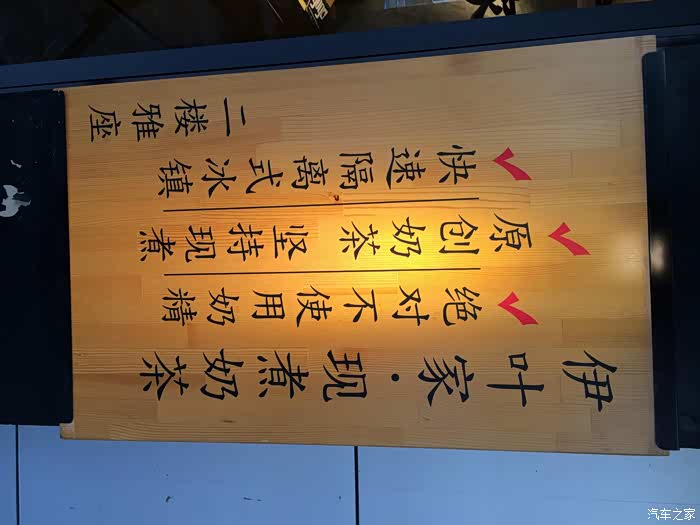 伊叶家·现煮奶茶
绝对不使用奶精
原创奶茶坚持现煮
快速隔离式冰镇
二楼雅座
汽车之家